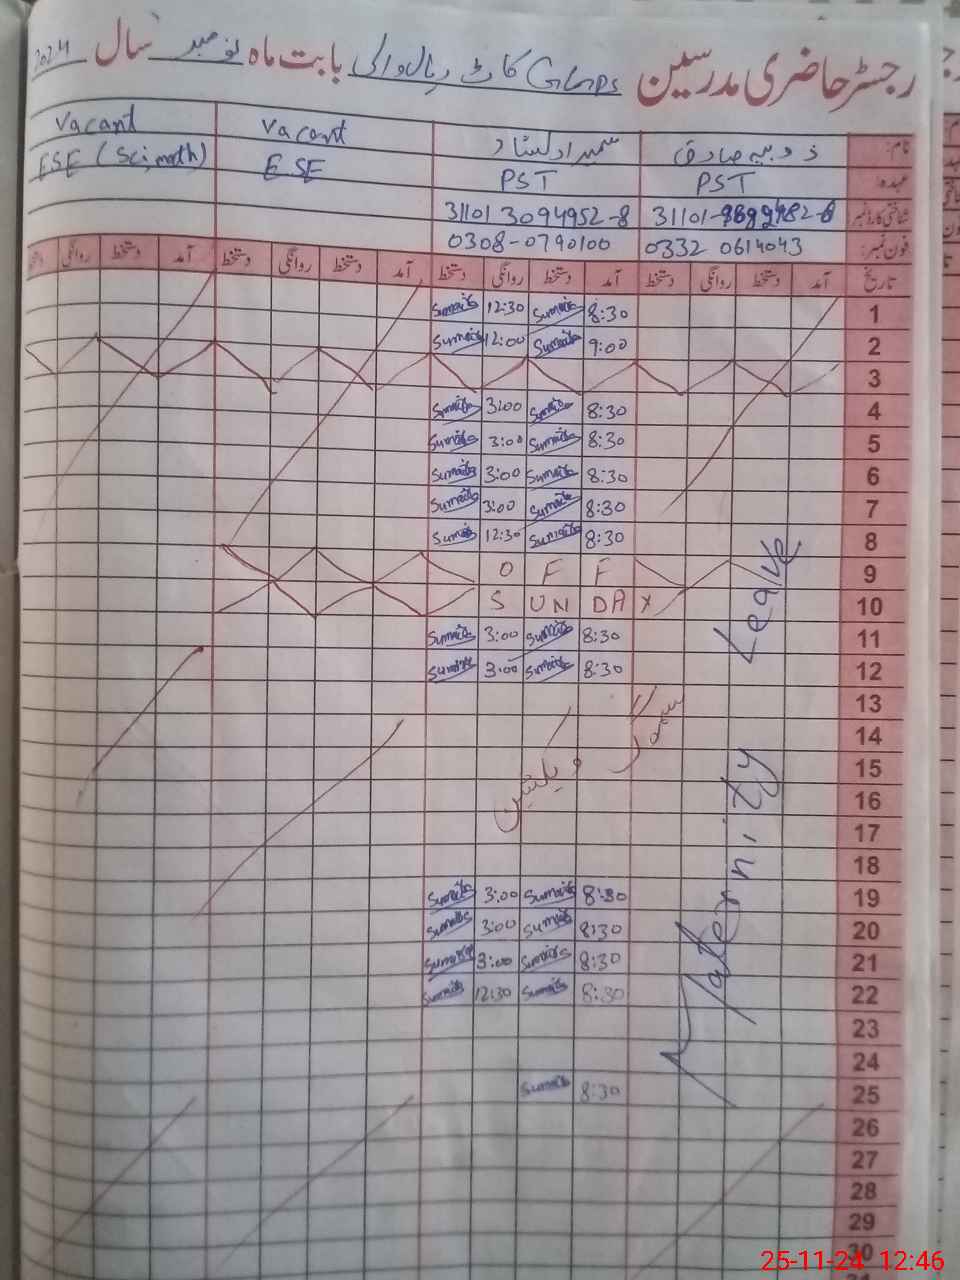 رجسٹر حاضری مدرسین GGPS کاٹ بابت ماہ نومبر سال 2024
نام: صادق سمیرا Vacant Vacant
عہدہ: PST PST ESE ESE (Sci, math)
شناختی کارڈ نمبر 31101- 31101 3094952-8
فون نمبر: 0332 0614043 0308-0790100
تاریخ آمد دستخط روانگی دستخط آمد دستخط روانگی دستخط آمد دستخط روانگی دستخط آمد دستخط روانگی دستخط
1 8:30 Sumaira 12:30 Sumaira
2 9:00 Sumaira 12:00 Sumaira
3
4 8:30 Sumaira 3:00 Sumaira
5 8:30 Sumaira 3:00 Sumaira
6 8:30 Sumaira 3:00 Sumaira
7 8:30 Sumaira 3:00 Sumaira
8 8:30 Sumaira 12:30 Sumaira
9 O F F
10 S UN DA Y
11 8:30 Sumaira 3:00 Sumaira
12 8:30 Sumaira 3:00 Sumaira
13
14
15
16
17
18
سموگ ویکیشن
19 8:30 Sumaira 3:00 Sumaira
20 8:30 Sumaira 3:00 Sumaira
21 8:30 Sumaira 3:00 Sumaira
22 8:30 Sumaira 12:30 Sumaira
23
24
25 8:30 Sumaira
26
27
28
29
30
Maternity Leave
25-11-24 12:46